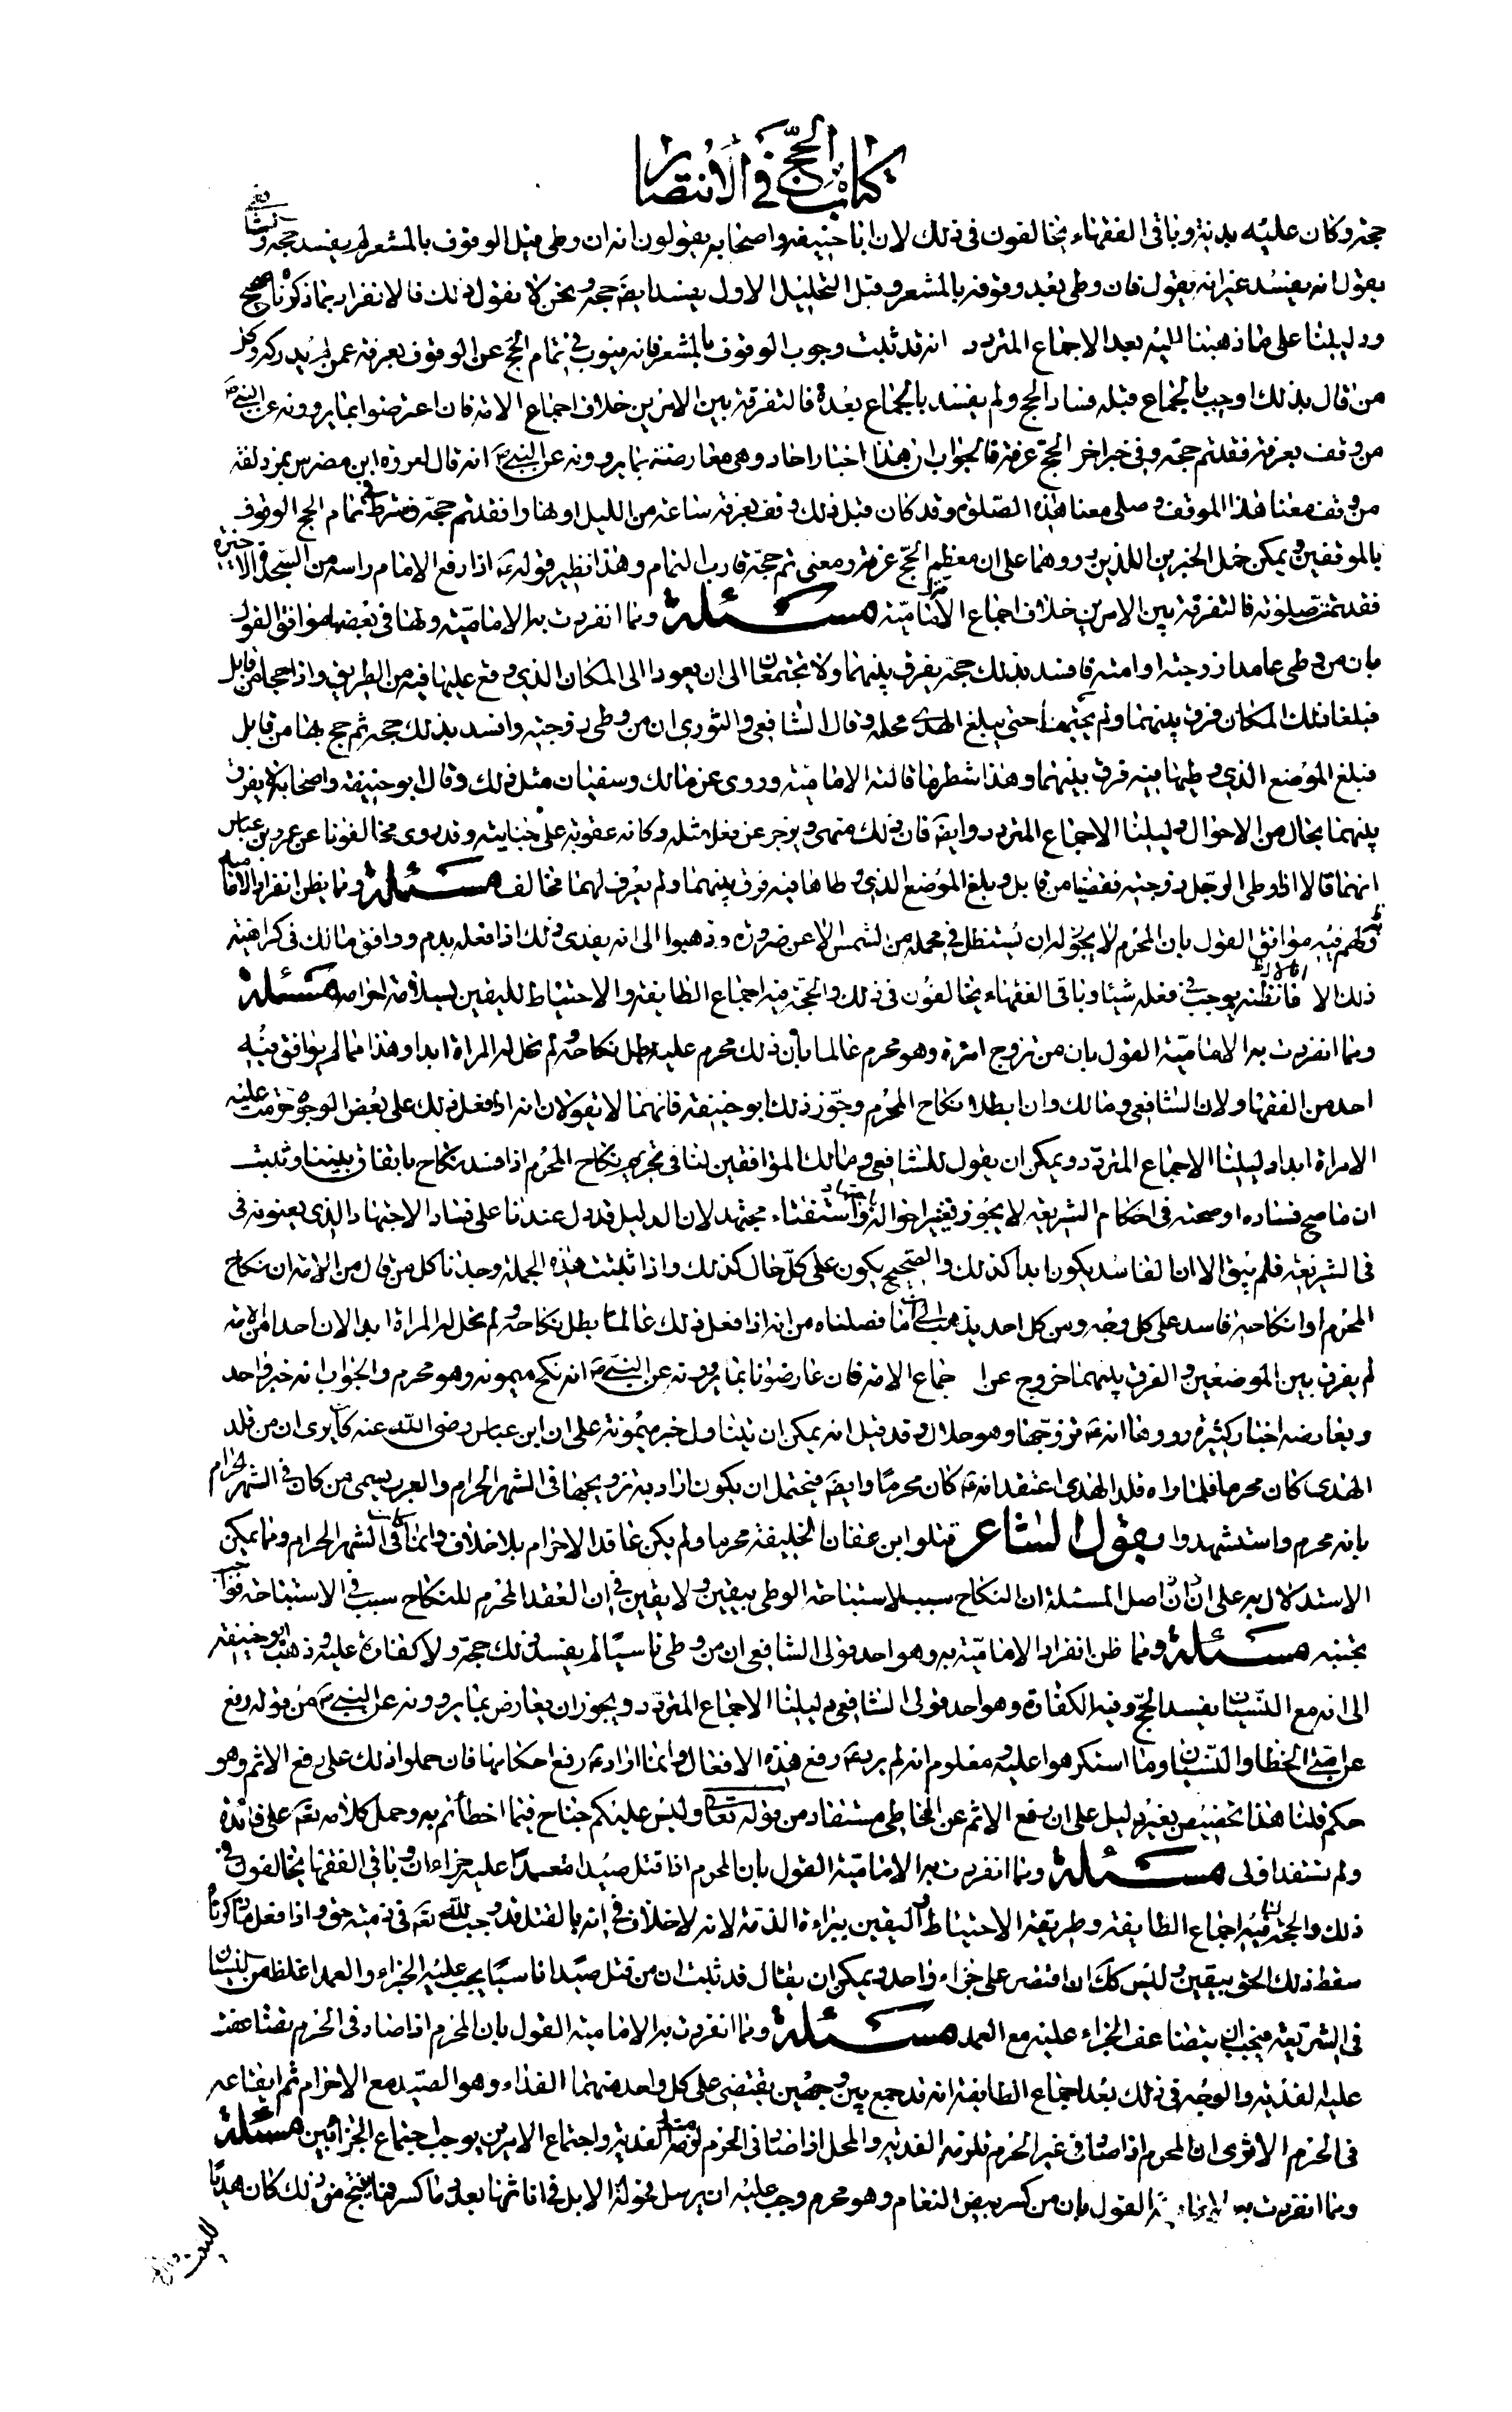 كتاب الحجّ في الأنتصار
حجته وكان عليه بدنة وباقي الفقهاء يخالفون في ذلك لان ابا حنيفه واصحابه يقولون انه ان وطى قبل الوقوف بالمشعر لم يفسد حجه والشافعي
يقول انه يفسد غير انه يقول فان وطى بعد وقوفه بالمشعر وقبل التحليل الاول يفسد ايضَ حجه ونحن لا نقول ذلك فالانفراد بما ذكرناه صحيح
ودليلنا على ما ذهبنا اليه بعد الاجماع المتردد انه قد ثبت وجوب الوقوف بالمشعر فانه ينوب في تمام الحج عن الوقوف بعرفة عمن لم يدركه وكل
من قال بذلك اوجب بالجماع قبله فساد الحج ولم يفسد بالجماع بعده فالتفرقة بين الامرين خلاف اجماع الامة فان اعترضوا بما يروونه عن النبي ص
من وقف بعرفة فقد تم حجه وفي خبر اخر الحج عرفة فالجواب ان هذا اخبار احاد وهي معارضة بما يروونه عن النبي ص انه قال لعروة ابن مضرس بمزدلفة
من وقف معنا هذا الموقف وصلى معنا هذه الصلوة وقد كان قبل ذلك وقف بعرفة ساعة من الليل او نهار فقد تم حجه فشرط في تمام الحج الوقوف
بالموقفين ويمكن حمل الخبرين اللذين رووهما على ان معظم الحج عرفة ومعنى تم حجه قارب التمام وهذا نظير قوله ع اذا رفع الامام راسه من السجدة الاخيرة
فقد تمت صلوته فالتفرقة بين الامرين خلاف اجماع الامامية مسئلة ومما انفردت به الامامية ولها في بعضه موافق القول
بان من وطى عامدا زوجته او امته فافسد بذلك حجه يفرق بينهما ولا يجتمعان الى ان يعودا الى المكان الذي وقع عليها فيه من الطريق واذا حجا من قابل
فبلغا ذلك المكان فرق بينهما ولم يجتمعا حتى يبلغ الهدى محله وقال الشافعي والثوري ان من وطى زوجته وافسد بذلك حجه ثم حج بها من قابل
فبلغ الموضع الذي وطيها فيه فرق بينهما وهذا شطر ما قالته الامامية وروى عن مالك وسفيان مثل ذلك وقال ابو حنيفة واصحابه لا يفرق
بينهما بحال من الاحوال دليلنا الاجماع المتردد وايضَ فان ذلك منهى ويزجر عن فعل مثله وكانه عقوبة على جنايته وقد روى مخالفونا عن عمر وبن عباس
انهما قالا اذا وطى الرجل زوجته فقضيا من قابل وبلغ الموضع الذي وطاها فيه فرق بينهما ولم يعرف لهما مخالف مسئلة ومما يظن انفراد الامامية
به ولهم فيه موافق القول بان المحرم لا يجوز له ان يستظل في محمله من الشمس الا عن ضرورة وذهبوا الى انه يفدى ذلك اذا فعله بدم ووافق مالك في كراهية
ذلك الا فانظنه يوجب في فعله شيئا وباقي الفقهاء يخالفون في ذلك والحجة فيه اجماع الطايفة والاحتياط لليقين بسلامة احرامه مسئلة
ومما انفردت به الامامية القول بان من تزوج امرءة وهو محرم عالما بأن ذلك محرم عليه بطل نكاحه ولم تحل له المراة ابدا وهذا مما لم يوافق فيه
احد من الفقها ولان الشافعي ومالك وان ابطلا نكاح المحرم وجوّز ذلك ابو حنيفة فانهما لا يقولان انه اذا فعل ذلك على بعض الوجوه حرمت عليه
الامراة ابدا دليلنا الاجماع المتردد ويمكن ان يقول للشافعي ومالك الموافقين لنا في تحريم نكاح المحرم اذا فسد نكاح باتفاق بيننا وثبت
ان ما صح فساده او صحته في احكام الشريعة لا يجوز تغير احواله باجتهاد واستفتاء مجتهد لان الدليل قد دل عندنا على فساد الاجتهاد الذي يعنونه في
في الشريعة فلم يبق الا ان الفاسد يكون ابدا كذلك والصحيح يكون على كل حال كذلك واذا ثبتت هذه الجملة وجدنا كل من قال من الامة ان نكاح
المحرم او انكاحه فاسد على كل وجه ومن كل احد يذهب الى ما فصلناه من انه اذا فعل ذلك عالما بطل نكاحه ولم تحل له المراة ابدا لان احدا من الامة
لم يفرق بين الموضعين والفرق بينهما خروج عن ا جماع الامة فان عارضونا بما يروونه عن النبي ص انه نكح ميمونة وهو محرم والجواب انه خبر واحد
ويعارضه اخبار كثيرة رووها انه ع تزوجها وهو حلال وقد قيل انه يمكن ان يتناول خبر ميمونة على ان ابن عباس رضى الله عنه كان يرى ان من قلد
الهدى كان محرما فلما راه قلد الهدى اعتقد انه ع كان محرمًا وايضَ فيحتمل ان يكون اراد به تزويجها في الشهر الحرام والعرب يسمى من كان في الشهر الحرام
بانه محرم واستشهدوا بقول الشاعر قتلوا ابن عفان الخليفة محرما ولم يكن عاقد الاحرام بلا خلاف وانما كان في الشهر الحرام ومما يمكن
الاستدلال به على ان اصل المسئلة ان النكاح سبب لاستباحة الوطى بيقين ولا يقين في ان العقد المحرم للنكاح سبب في الاستباحة فوجب
تجنبه مسئلة ومما ظن انفراد الامامية به وهو احد قولى الشافعي ان من وطى ناسيًا لم يفسد ذلك حجه ولا كفارة عليه وذهب ابو حنيفة
الى انه مع النسيان يفسد الحج وفيه الكفارة وهو احد قولى الشافعي دليلنا الاجماع المتردد ويجوز ان يعارض بما يروونه عن النبي ص من قوله رفع
عن امتي الخطا والنسيان وما استكرهوا عليه ومعلوم انه لم يرد ع رفع هذه الافعال وانما اراد ع رفع احكامها فان حملوا ذلك على رفع الاثم وهو
حكم قلنا هذا تخصيص بغير دليل على ان رفع الاثم عن الخاطى مستفاد من قوله تعالى وليس عليكم جناح فيما اخطأتم به وحمل كلامه تعَ على فائدة
ولم تستفد اولى مسئلة ومما انفردت به الامامية القول بان المحرم اذا قتل صيدا متعمدًا عليه جزاءان وباقي الفقها يخالفون في
ذلك والحجة فيه اجماع الطايفة وطريقة الاحتياط واليقين ببراءة الذمة لانه لا خلاف في انه بالقتل قد وجب لله تعَ في ذمته حق واذا فعل ما ذكرناه
سقط ذلك الحق بيقين وليس كك ان اقتصر على جزاء واحد ويمكن ان يقال قد ثبت ان من قتل صيدا ناسيًا يجب عليه الجزاء والعمد اغلظ من النسيان
في الشريعة فيجب ان يتضاعف الجزاء عليه مع العمد مسئلة ومما انفردت به الامامية القول بان المحرم اذا صاد في الحرم تضاعفت
عليه الفدية والوجه في ذلك بعد اجماع الطايفة انه قد جمع بين وجهين يقتضى على كل واحد منهما الفداء وهو الصيد مع الاحرام ثم ايقاعه
في الحرم الا ترى ان المحرم اذا صاد في غير الحرم تلزمه الفدية والمحل اذا صاد في الحرم لزمته الفدية واجتماع الامرين يوجب اجتماع الجزائين مسئلة
ومما انفردت به القول بان من كسر بيض النعام وهو محرم وجب عليه ان يرسل فحولة الابل في اناثها بعدد ما كسر فما ينتج من ذلك كان هديًا
للبيت